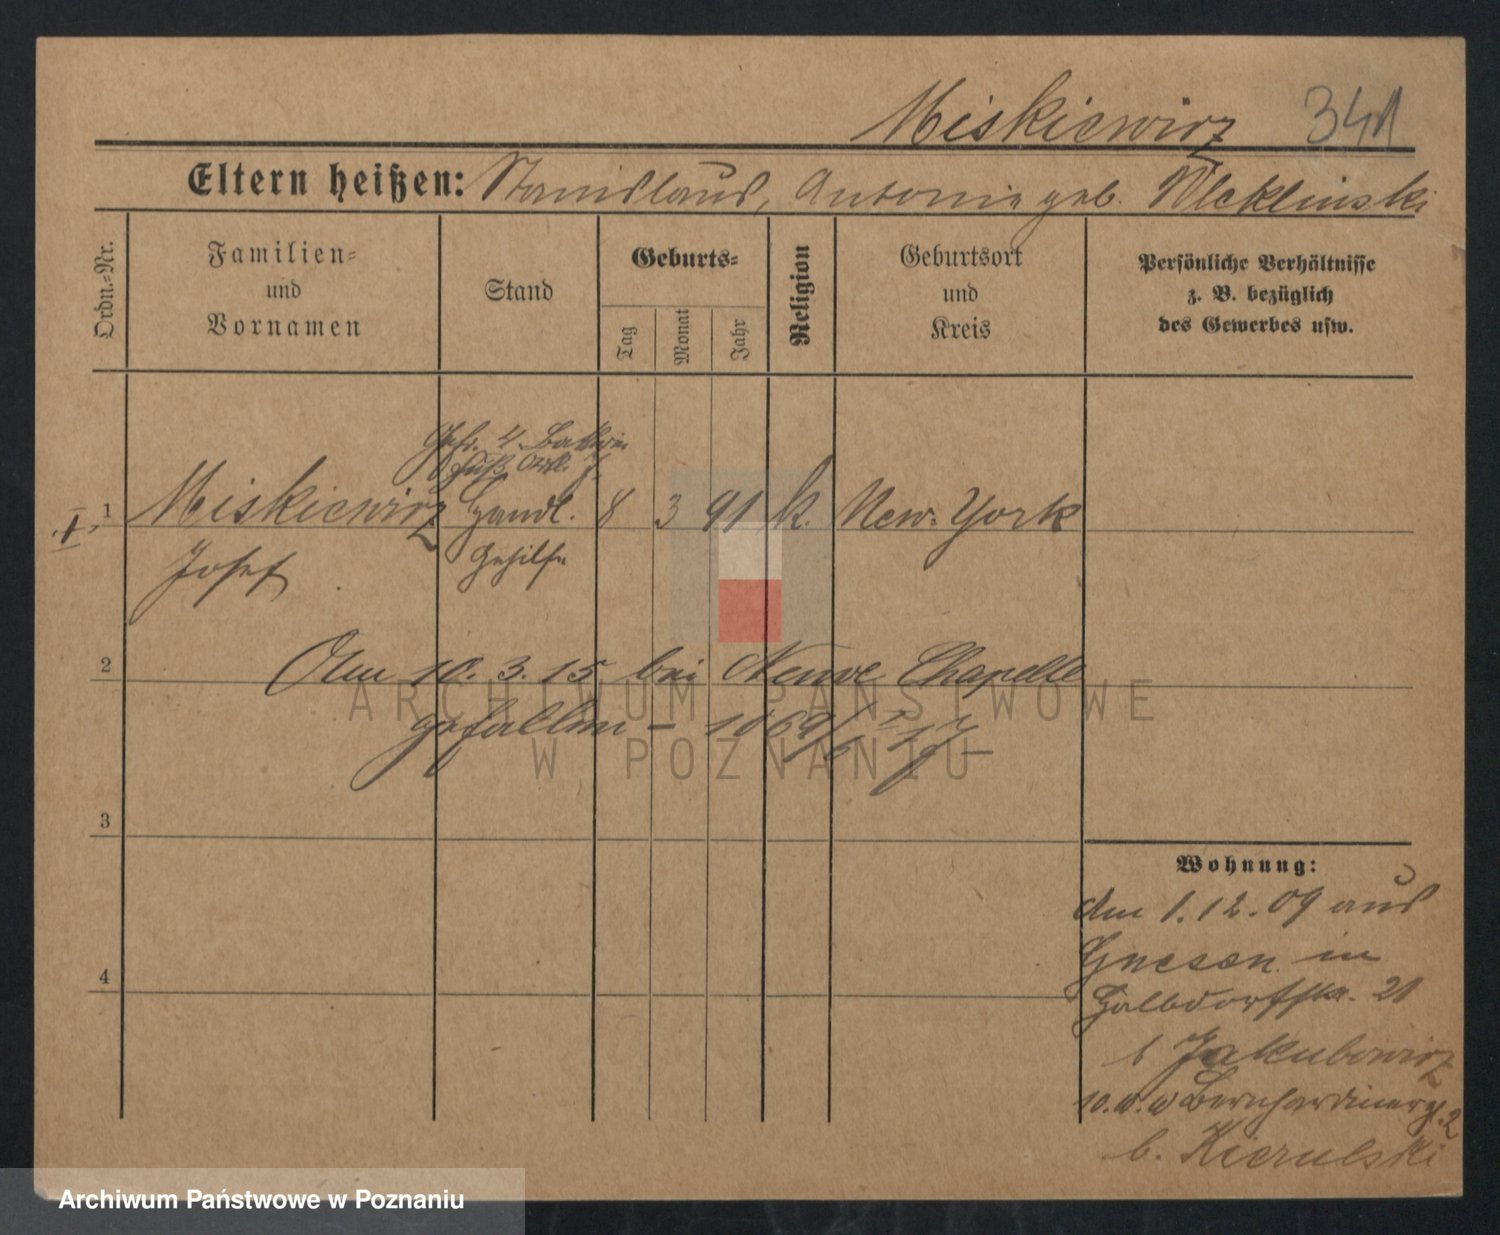 Miskiewicz 341
Eltern heißen: Stanislaus, Antonie geb. Weklinski
Ordn.-Nr.
Familien-
und
Vornamen
Stand
Geburts-
Tag
Monat
Jahr
Religion
Geburtsort
und
Kreis
Persönliche Verhältnisse
z. B. bezüglich
des Gewerbes usw.
Gefr. 4. Battrie
Fuß
1 Miskiewicz Handl. 8 3 91 k. New-York
Josef Gehilfe
2 Am 10. 3. 15 bei Neuve Chapelle
gefallen – 1069/
3
4
Wohnung:
Am 1.12.09 aus
Gnesen in
Halbdorfstr. 21
b Jakubowicz
10. Bernhardinerpl. 2
b.
ARCHIWUM PAŃSTWOWE
W POZNANIU
Archiwum Państwowe w Poznaniu